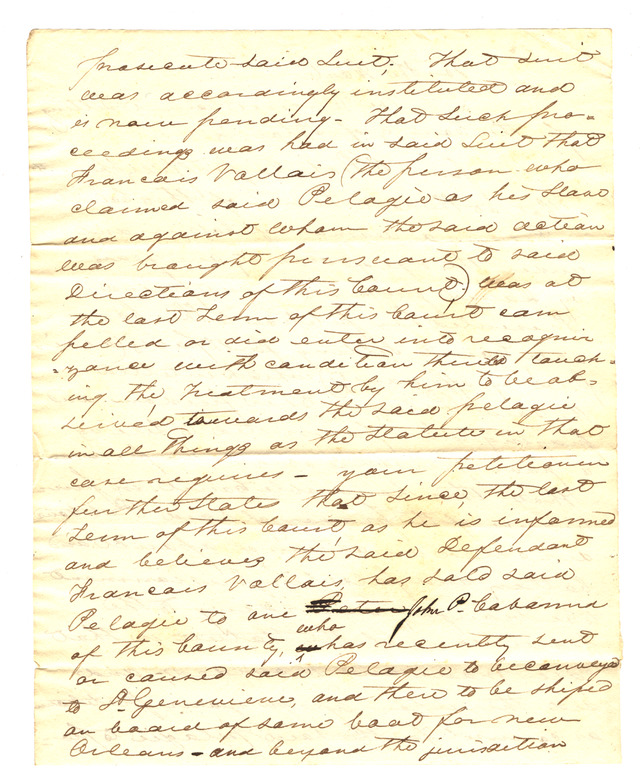 prosecute said Suit. That suit
was accordingly instituted and
is now pending - That Such pro=
ceedings was had in said Suit that
Francais Vallais (the person who
claimed said Pelagie as his Slave
and against whom the said action
was brought pursuant to said
Directions of this Court) was at
the last Term of this Court com
pelled or did enter into recogni
=zance with condition thereto touch=
ing the Treatment by him to be ob=
served towards the said pelagie
in all Things as the Statute in that
case requires - your petitioner
further States that Since, the last
Term of this Court as he is informed
and believes the said Defendant
Francais Vallais, has sold said
Pelagie to one John P. Cabanna
of this County, who has recently sent
or caused said Pelagie to be conveyed
to St Genevieve, and then to be shiped
on board of some boat for new
Orleans - and beyond the jurisdition